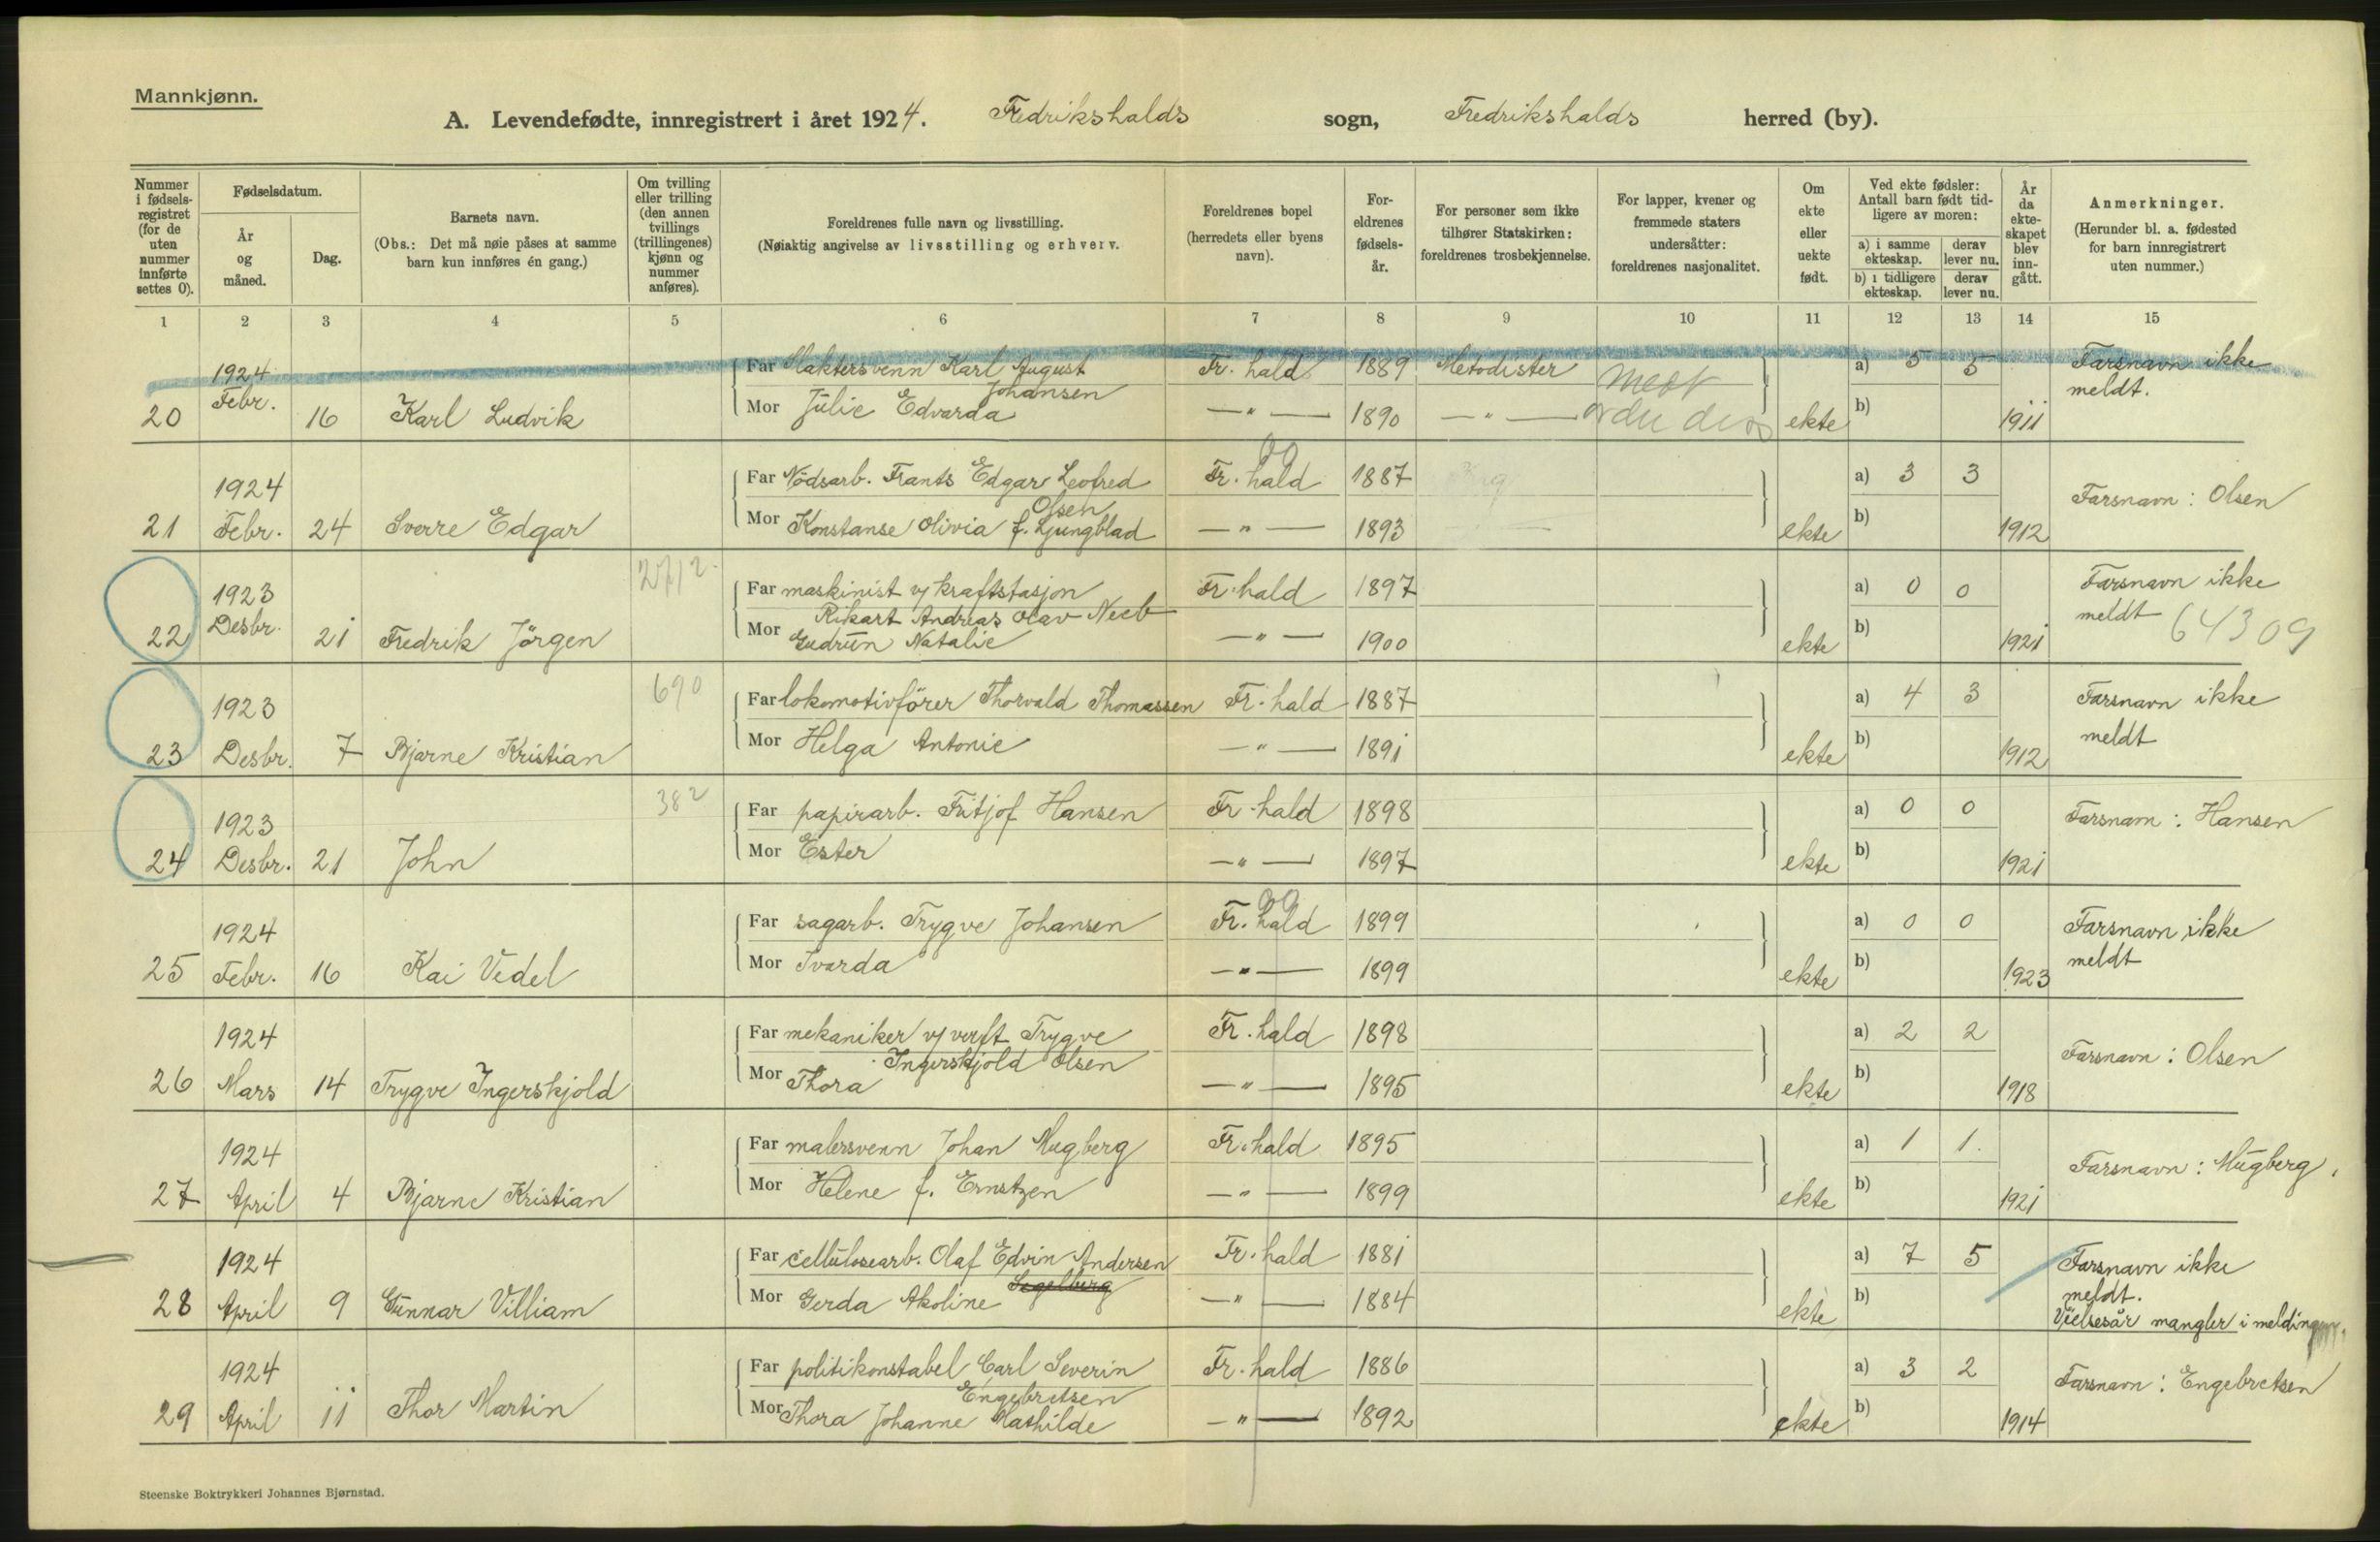 Mannkjønn.
A. Levendefødte, innregistrert i året 1924. Fredrikshalds sogn, Fredrikshalds herred (by).
Nummer i fødselsregistret (for de uten nummer innførte settes 0).
Fødselsdatum.
År og måned.
Dag.
Barnets navn.
(Obs.: Det må nøie påses at samme barn kun innføres én gang.)
Om tvilling eller trilling (den annen tvillings (trillingenes) kjønn og nummer anføres).
Foreldrenes fulle navn og livsstilling.
(Nøiaktig angivelse av livsstilling og erhverv.
Foreldrenes bopel (herredets eller byens navn).
Foreldrenes fødselsår.
For personer som ikke tilhører Statskirken: foreldrenes trosbekjennelse.
For lapper, kvener og fremmede staters undersåtter: foreldrenes nasjonalitet.
Om ekte eller uekte født.
Ved ekte fødsler: Antall barn født tidligere av moren:
a) i samme ekteskap. derav lever nu.
b) i tidligere ekteskap. derav lever nu.
År da ekteskapet blev inngått.
Anmerkninger.
(Herunder bl. a. fødested for barn innregistrert uten nummer.)
1 2 3 4 5 6 7 8 9 10 11 12 13 14 15
1924 Far Slaktersvenn Karl August Fr. hald 1889 Metodister a) 5 5 Farsnavn ikke
Johansen meldt.
20 Febr. 16 Karl Ludvik Mor Julie Edvarda —"— 1890 —"— ekte b) 1911
1924 Far Nödsarb. Frants Edgar Leofred Fr. hald 1887 a) 3 3 Farsnavn: Olsen
Olsen
21 Febr. 24 Sverre Edgar Mor Konstanse Olivia f. Ljungblad —"— 1893 ekte b) 1912
2712
1923 Far maskinist v/ kraftstasjon Fr. hald 1897 a) 0 0 Farsnavn ikke
Rikart Andreas Olav Neeb meldt 64309
22 Desbr. 21 Fredrik Jörgen Mor Gudrun Natalie —"— 1900 ekte b) 1921
690
1923 Far lokomotivförer Thorvald Thomassen Fr. hald 1887 a) 4 3 Farsnavn ikke
23 Desbr. 7 Bjarne Kristian Mor Helga Antonie —"— 1891 ekte b) 1912 meldt
382
1923 Far papirarb. Fritjof Hansen Fr. hald 1898 a) 0 0 Farsnam: Hansen
24 Desbr. 21 John Mor Ester —"— 1897 ekte b) 1921
1924 Far sagarb. Trygve Johansen Fr. hald 1899 a) 0 0 Farsnavn ikke
25 Febr. 16 Kai Vedel Mor Ivarda —"— 1899 ekte b) 1923 meldt
1924 Far mekaniker v/ verft Trygve Fr. hald 1898 a) 2 2 Farsnavn: Olsen
Ingerskjold Olsen
26 Mars 14 Trygve Ingerskjold Mor Thora —"— 1895 ekte b) 1918
1924 Far malersvenn Johan Mugberg Fr. hald 1895 a) 1 1. Farsnavn: Mugberg.
27 April 4 Bjarne Kristian Mor Helene f. Ernstzen —"— 1899 ekte b) 1921
1924 Far cellulosearb. Olaf Edvin Andersen Fr. hald 1881 a) 7 5 Farsnavn ikke
Segelberg meldt.
28 April 9 Gunnar Villiam Mor Gerda Akoline —"— 1884 ekte b) Vielsesår mangler i meldingen.
1924 Far politikonstabel Carl Severin Fr. hald 1886 a) 3 2 Farsnavn: Engebretsen
Engebretsen
29 April 11 Thor Martin Mor Thora Johanne Mathilde —"— 1892 ekte b) 1914
Steenske Boktrykkeri Johannes Bjørnstad.